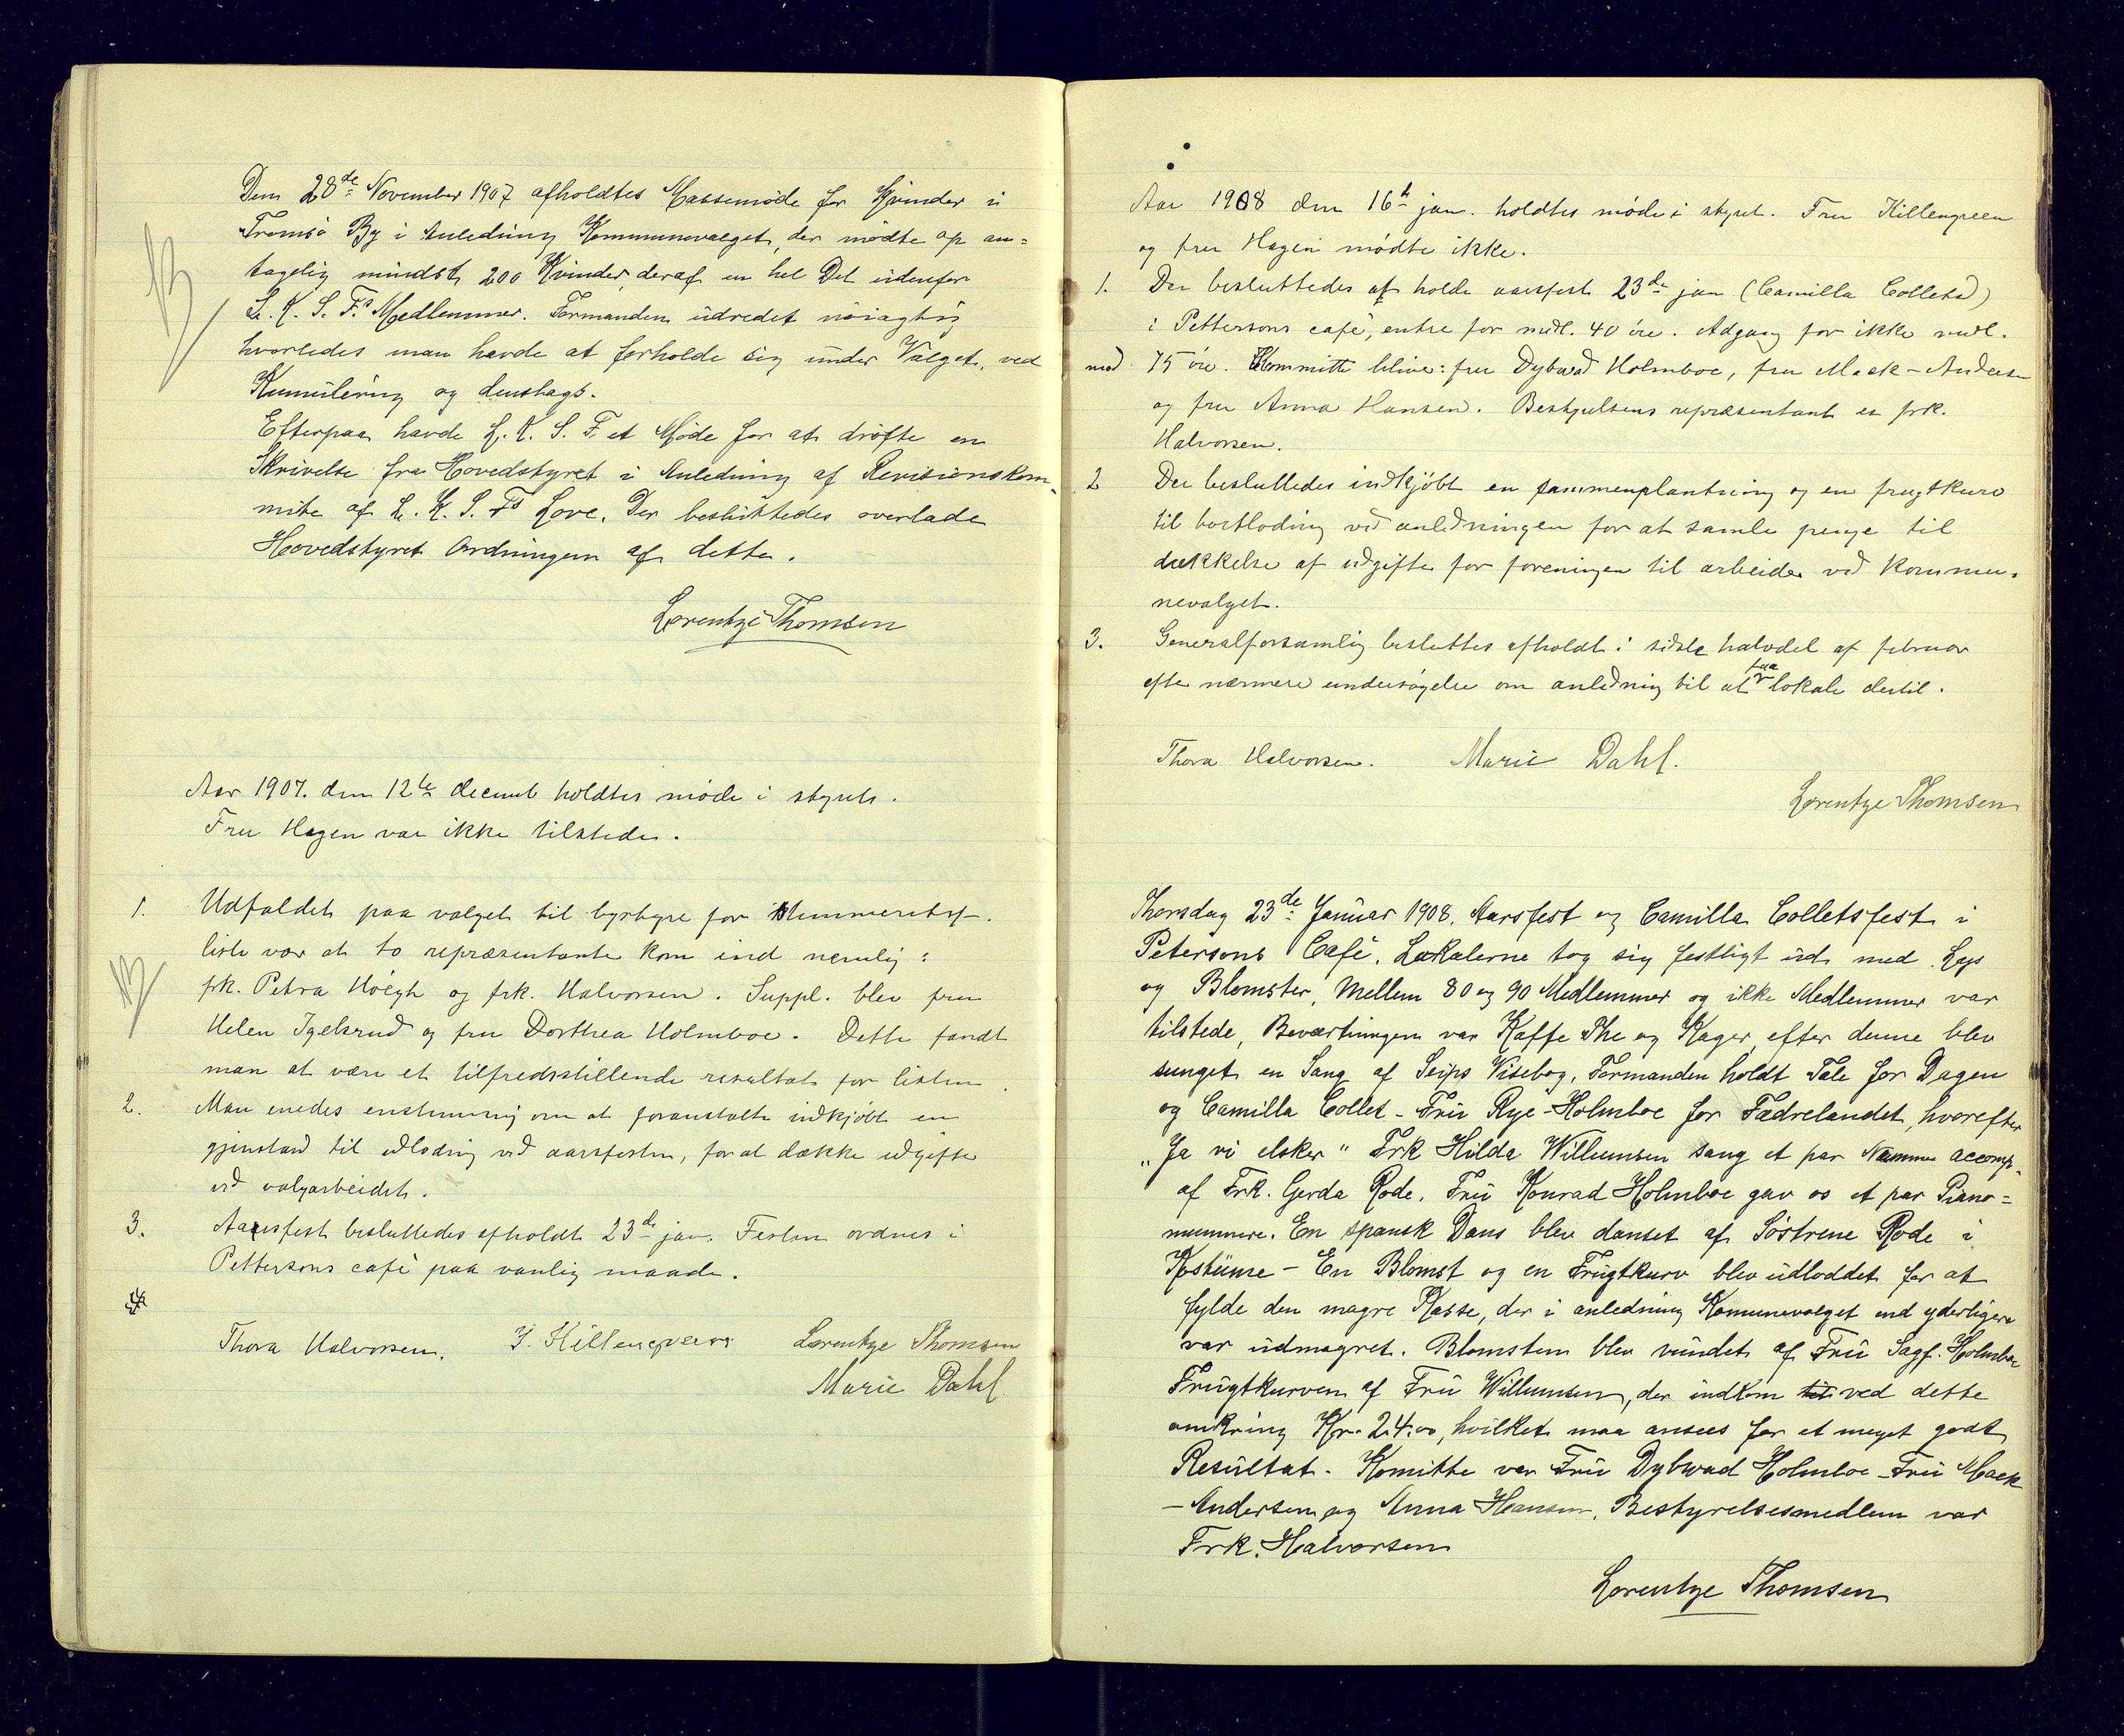 Den 28de November 1907 afholdtes Massemöde for Kvinder i
Tromsö By i Anledning Kommunevalget, der mödte op an=
tagelig mindst 200 Kvinder, deraf en hel Del udenfor
L. K. S. F.s Medlemmer. Formanden udredet nöiagtig
hvorledes man havde at forholde sig under Valget, ved
Kumulering og denslags.
Efterpaa havde L. K. S. F. et Möde for at dröfte en
Skrivelse fra Hovedstyret i Anledning af Revisionskom-
mite af L. K. S. Fs Love. Der besluttedes overlade
Hovedstyret Ordningen af dette.
Lorentze Thomsen
Aar 1907. den 12te decemb holdtes möde i styret.
Fru Hagen var ikke tilstede.
1. Udfaldet paa valget til bystyre for Stemmeretsf-
liste var at to repræsentanter kom ind nemlig:
frk. Petra Höegh og frk. Halvorsen. Suppl. blev fru
Helen Igelsrud og fru Dorthea Holmboe. Dette fandt
man at være et tilfredsstillende resultat for listen.
2. Man enedes enstemmig om at foranstalte indkjöbt en
gjenstand til udlodning ved aarsfesten, for at dække udgifter
ved valgarbeidet.
3. Aarsfest besluttedes afholdt 23de jan. Festen ordnes i
Pettersons café paa vanlig maade.
Thora Halvorsen. I. Killengreen Lorentze Thomsen
Marie Dahl
Aar 1908 den 16de jan. holdtes möde i styret. Fru Killengreen
og fru Hagen mödte ikke.
1. Der besluttedes at holde aarsfest 23de jan (Camilla Colletsd)
i Pettersons café, entre for medl. 40 öre. Adgang for ikke medl.
mod 75 öre. Kommitte bliver: fru Dybwad Holmboe, fru Mack-Andersen
og fru Anna Hansen. Bestyrelsens repræsentant er frk.
Halvorsen.
2 Der besluttedes indkjöbt en sammenplantning og en frugtkurv
til bortlodning ved anledningen for at samle penge til
dækkelse af udgifter for foreningen til arbeidet ved kommu-
nevalget.
3. Generalforsamlig besluttes afholdt i sidste halvdel af februar
efter nærmere undersögelse om anledning til at faa lokale dertil.
Thora Halvorsen. Marie Dahl.
Lorentze Thomsen
Thorsdag 23de Januar 1908. Aarsfest og Camilla Colletsfest i
Petersons Café. Lokalerne tog sig festligt ud med Lys
og Blomster, Mellem 80 og 90 Medlemmer og ikke Medlemmer var
tilstede, Beværtningen var Kaffe The og Kager, efter denne blev
sunget en Sang af Seips Visebog, Formanden holdt Tale for Dagen
og Camilla Collet - Fru Rye-Holmboe for Fædrelandet, hvorefter
"Ja vi elsker" Frk Hilda Willumsen sang et par Numme accomp.
af Frk. Gerda Rode. Fru Konrad Holmboe gav os et par Piano=
nummere. En spansk Dans blev danset af Söstrene Rode i
Kostüme - En Blomst og en Frugtkurv blev udloddet for at
fylde den magre Kasse, der i anledning Komunevalget end yderligere
var udmagret. Blomsten blev vundet af Fru Sagf. Holmboe
Frugtkurven af Fru Willumsen, der indkom til ved dette
omkring Kr. 24.00, hvilket maa ansees for et meget godt
Resultat. Komitte var Fru Dybwad Holmboe - Fru Mack
- Andersen og Anna Hansen, Bestyrelsesmedlem var
Frk. Halvorsen
Lorentze Thomsen